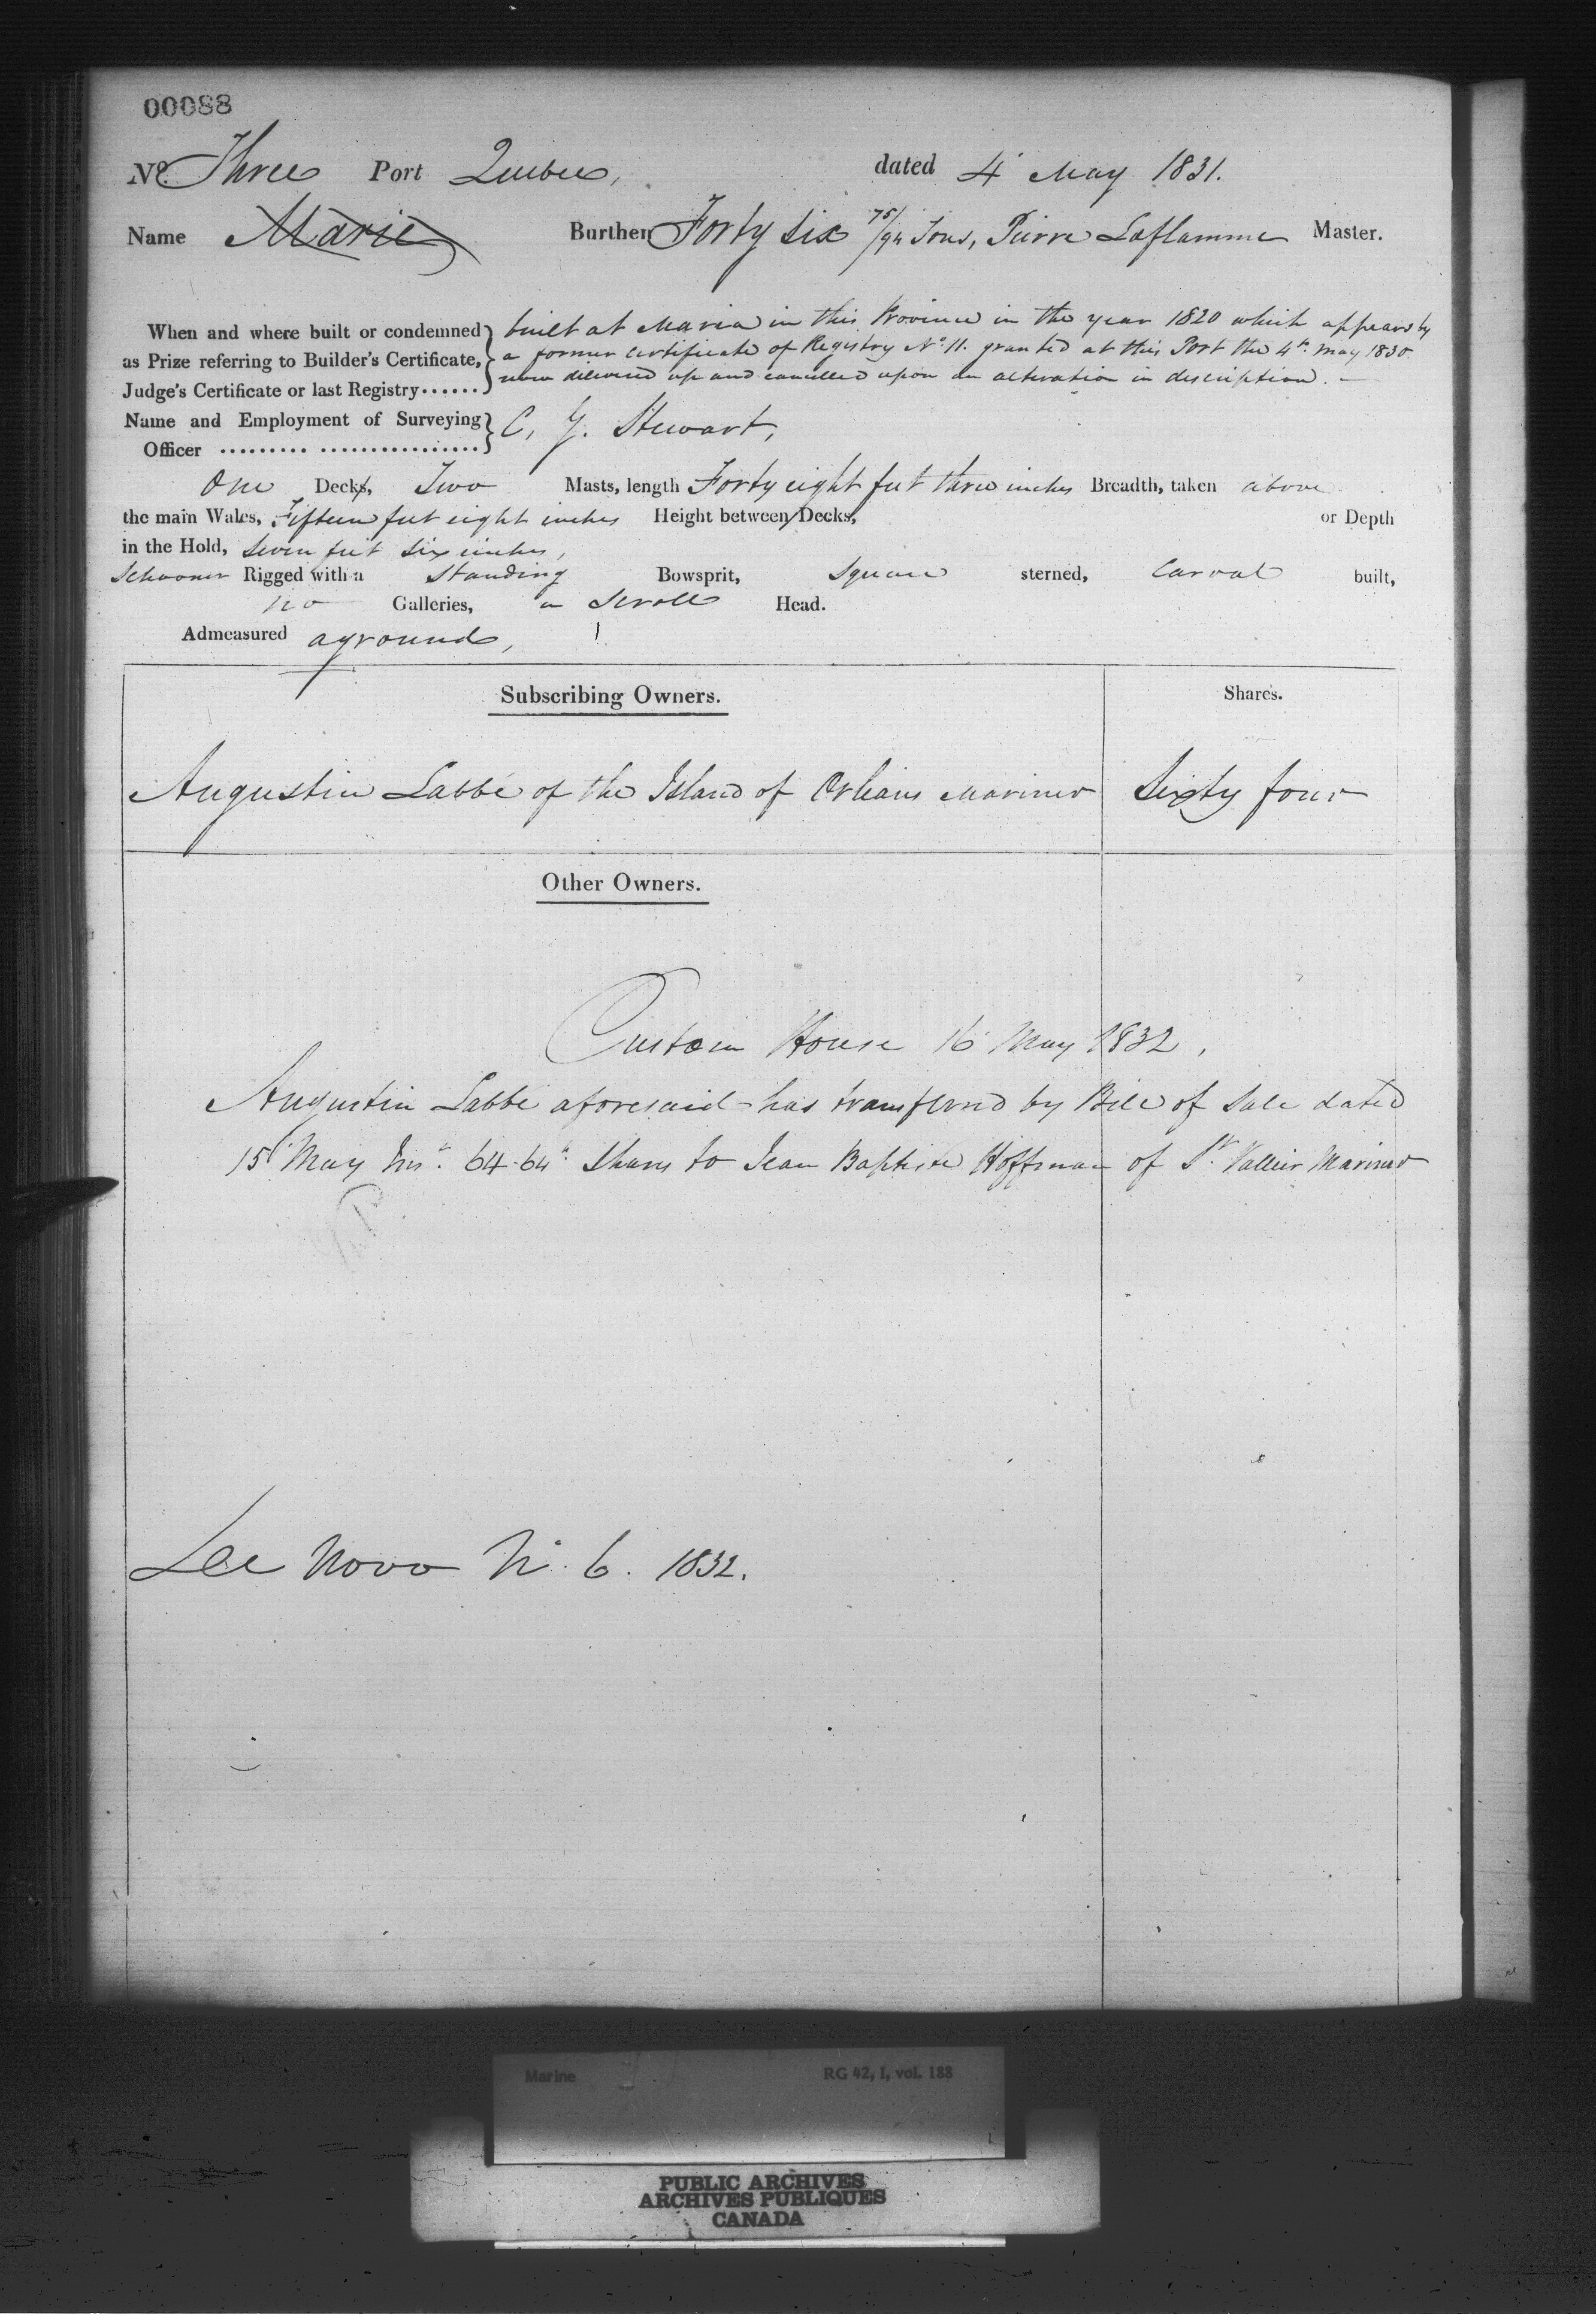 00088
No. Three Port Quebec, dated 4 May 1831.
Name Marie Burthen Forty six 75/94 Tons, Pierre Laflamme Master.
When and where built or condemned as Prize referring to Builder's Certificate, Judge's Certificate or last Registry......
built at Maria in this Province in the year 1820 which appears by
a former Certificate of Registry No. 11. granted at this Port the 4th. May 1830.
now delivered up and cancelled upon an alteration in description. —
Name and Employment of Surveying Officer ......... ................
C, G. Stewart,
One Decks, Two Masts, length Forty eight feet three inches Breadth, taken above
the main Wales, Fifteen feet eight inches Height between Decks, or Depth
in the Hold, Seven feet six inches,
Schooner Rigged with a Standing Bowsprit, Square sterned, Carvel built,
no Galleries, a Scroll Head.
Admeasured aground,
Subscribing Owners. Shares.
Augustin Labbé of the Island of Orleans Mariner Sixty four
Other Owners.
Custom House 16 May 1832.
Augustin Labbé aforesaid has transferred by Bill of Sale dated
15 May Inst. 64-64th Shares to Jean Baptiste Hoffman of St. Vallier Mariner
See Novo No. 6. 1832.
Marine RG 42, I, vol. 188
PUBLIC ARCHIVES
ARCHIVES PUBLIQUES
CANADA